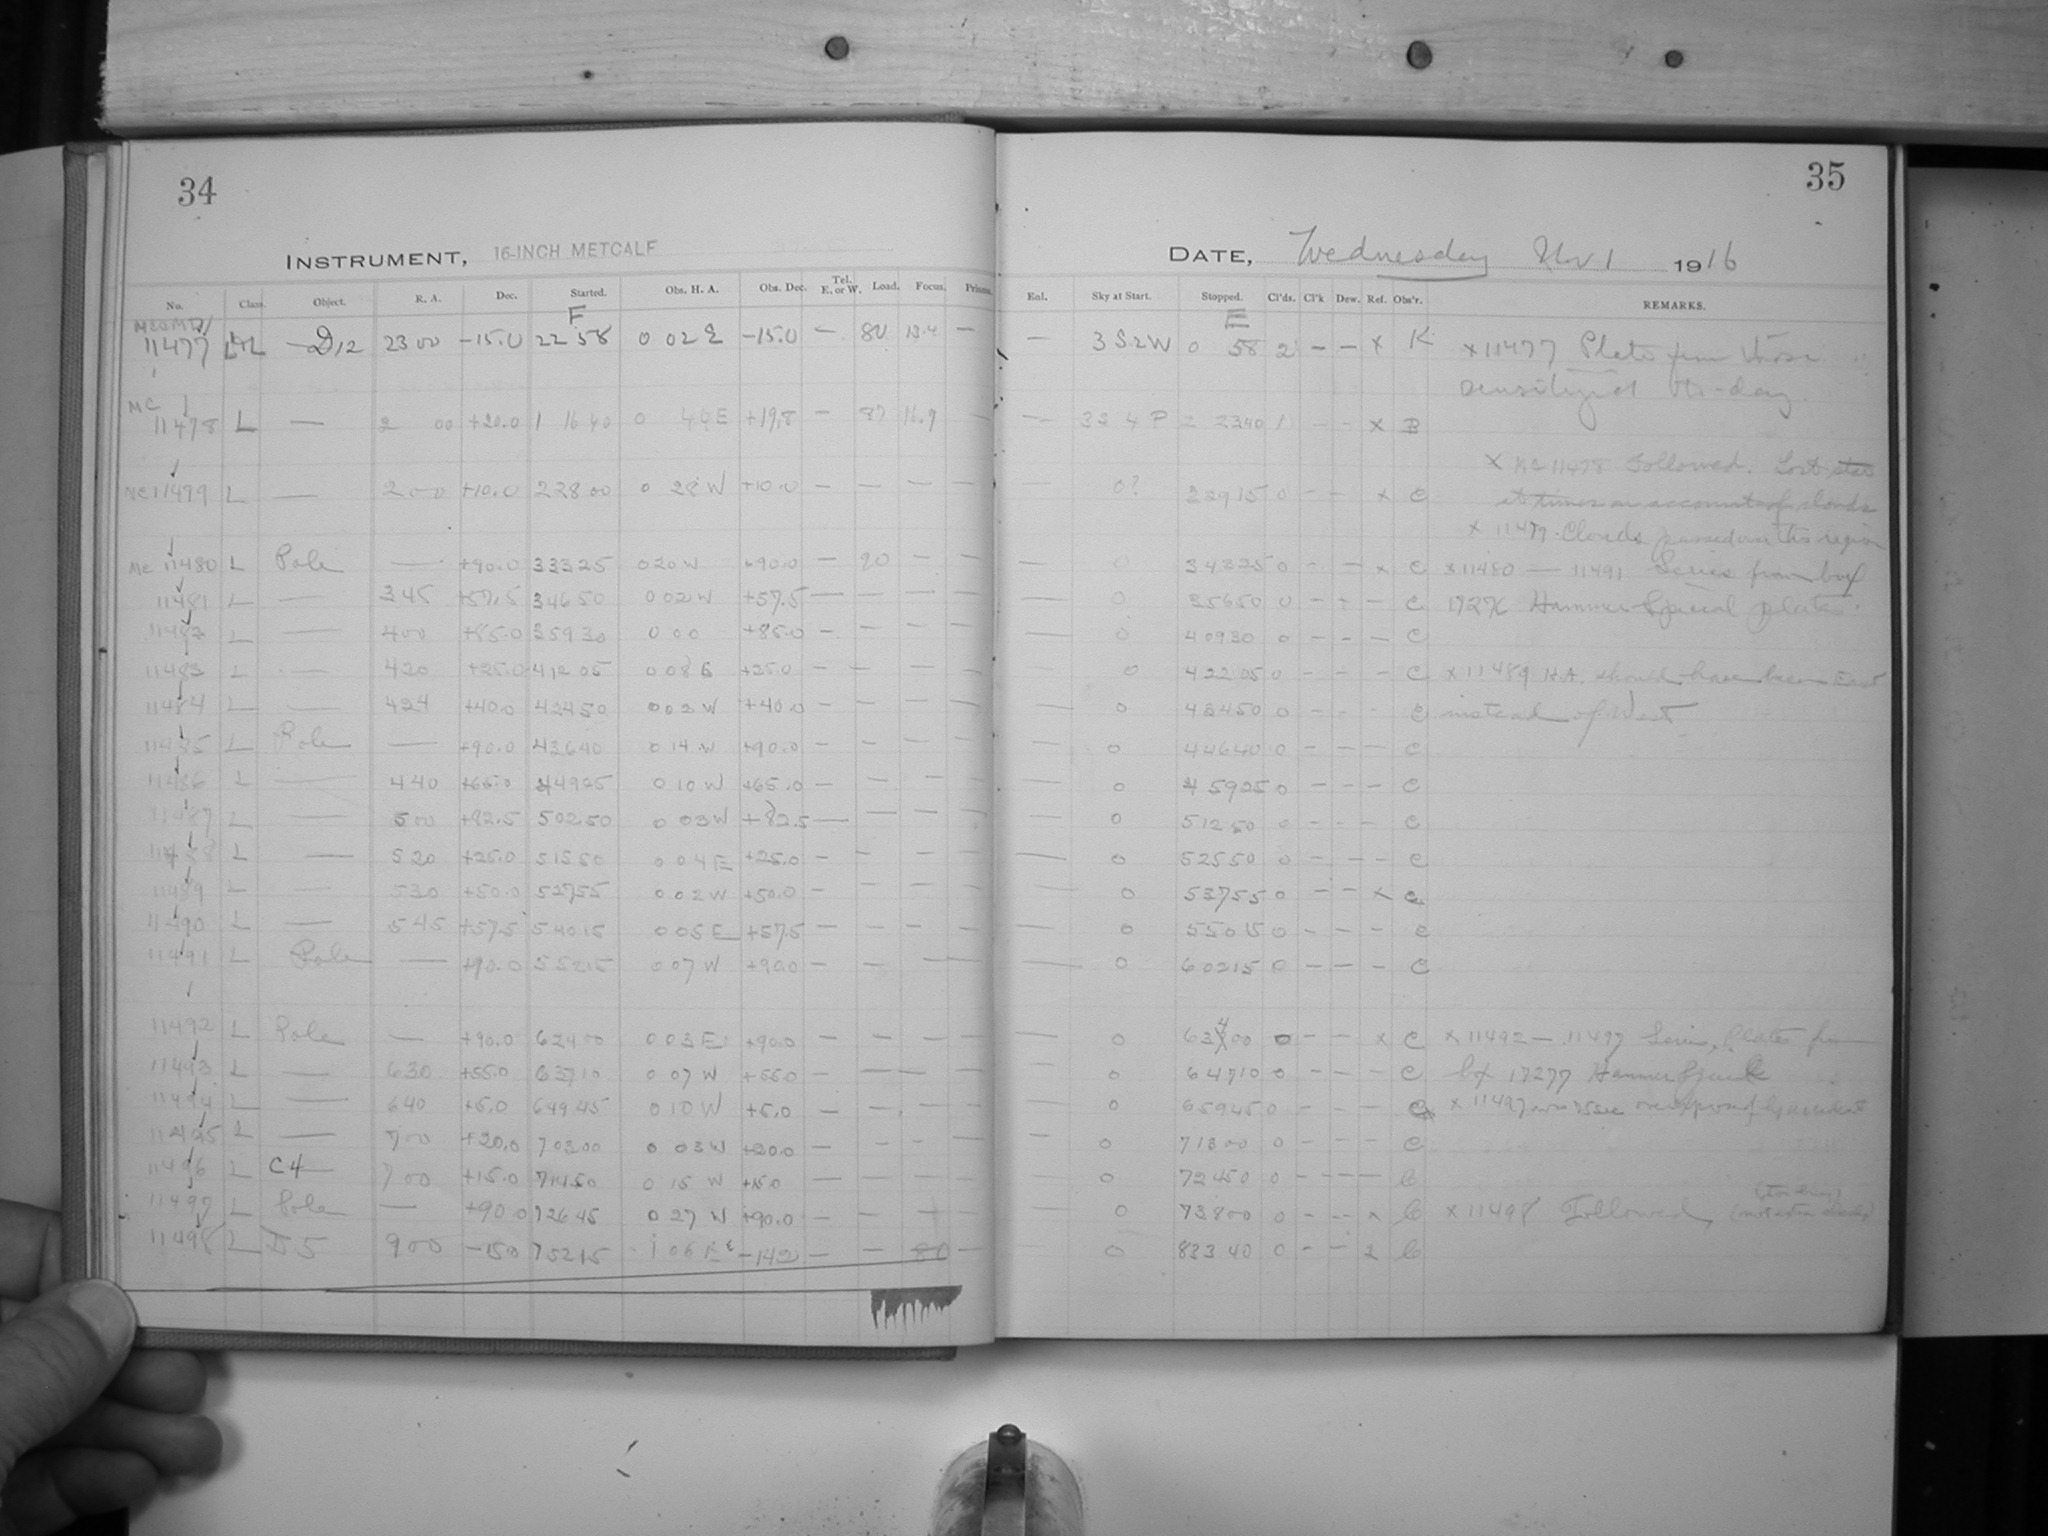 34
INSTRUMENT, 16-INCH METCALF
No. Class. Object. R. A. Dec. Started. Obs. H. A. Obs. Dec. Tel. E. or W. Load. Focus.
F
11477 D12 23 00 -15.0 22 58 0 02 E -15.0 — 80 13.4 —
MC
11478 L — 2 00 +20.0 1 16 40 0 44 E +19.8 — 87 16.9 —
MC 11479 L — 2 00 +10.0 2 28 00 0 28 W +10.0 — — — —
MC 11480 L Pole — +90.0 3 33 25 0 20 W +90.0 — 90 — —
11481 L — 3 45 +57.5 3 46 50 0 02 W +57.5 — — — —
11482 L — 4 00 +85.0 3 59 30 0 00 +85.0 — — — —
11483 L — 4 20 +25.0 4 12 05 0 08 E +25.0 — — — —
11484 L — 4 24 +40.0 4 24 50 0 02 W +40.0 — — — —
11485 L Pole — +90.0 4 36 40 0 14 W +90.0 — — — —
11486 L — 4 40 +65.0 4 49 25 0 10 W +65.0 — — — —
11487 L — 5 00 +82.5 5 02 50 0 03 W +82.5 — — — —
11488 L — 5 20 +25.0 5 15 50 0 04 E +25.0 — — — —
11489 L — 5 30 +50.0 5 27 55 0 02 W +50.0 — — — —
11490 L — 5 45 +57.5 5 40 15 0 05 E +57.5 — — — —
11491 L Pole — +90.0 5 52 15 0 07 W +90.0 — — — —
11492 L Pole — +90.0 6 24 00 0 03 E +90.0 — — — —
11493 L — 6 30 +55.0 6 37 10 0 07 W +55.0 — — — —
11494 L — 6 40 +5.0 6 49 45 0 10 W +5.0 — — — —
11495 L — 7 00 +20.0 7 03 00 0 03 W +20.0 — — — —
11496 L C4 7 00 +15.0 7 14 50 0 15 W +15.0 — — — —
11497 L Pole — +90.0 7 26 45 0 27 W +90.0 — — — —
11498 L D5 9 00 -15.0 7 52 15 1 06 E -14.2 — — 80 —
35
DATE, Wednesday Nov 1 1916
Enl. Sky at Start. Stopped. Cl'ds. Cl'k Dew. Ref. Obs'r. REMARKS.
E
— 3 S 2 W 0 58 2 — — x K x 11477 Plate from those
sensitized to-day.
— 3 2 4 P 2 23 40 1 — — x B
x MC 11478 Followed. Lost stars
at times on account of clouds
0? 2 39 15 0 — — x C
x 11479. Clouds passed over this region
— 0 3 43 25 0 — — x C x 11480 — 11491 Series from box
— 0 3 56 50 0 — — — C 17276 Hammer Special plate.
— 0 4 09 30 0 — — — C
— 0 4 22 05 0 — — — C x 11489 H.A. should have been East
— 0 4 34 50 0 — — C instead of West
— 0 4 46 40 0 — — — C
— 0 4 59 25 0 — — — C
— 0 5 12 50 0 — — — C
— 0 5 25 50 0 — — — C
— 0 5 37 55 0 — — x C
— 0 5 50 15 0 — — — C
— 0 6 02 15 0 — — — C
— 0 6 34 00 0 — — x C x 11492 — 11497 Series, Plates from
— 0 6 47 10 0 — — — C box 17277 Hammer Special
— 0 6 59 45 0 — — — C x 11497 was 15 sec overexposed by accident
— 0 7 13 00 0 — — — C
— 0 7 24 50 0 — — — C
— 0 7 38 00 0 — — x C x 11498 Followed,
— 0 8 33 40 0 — — x C